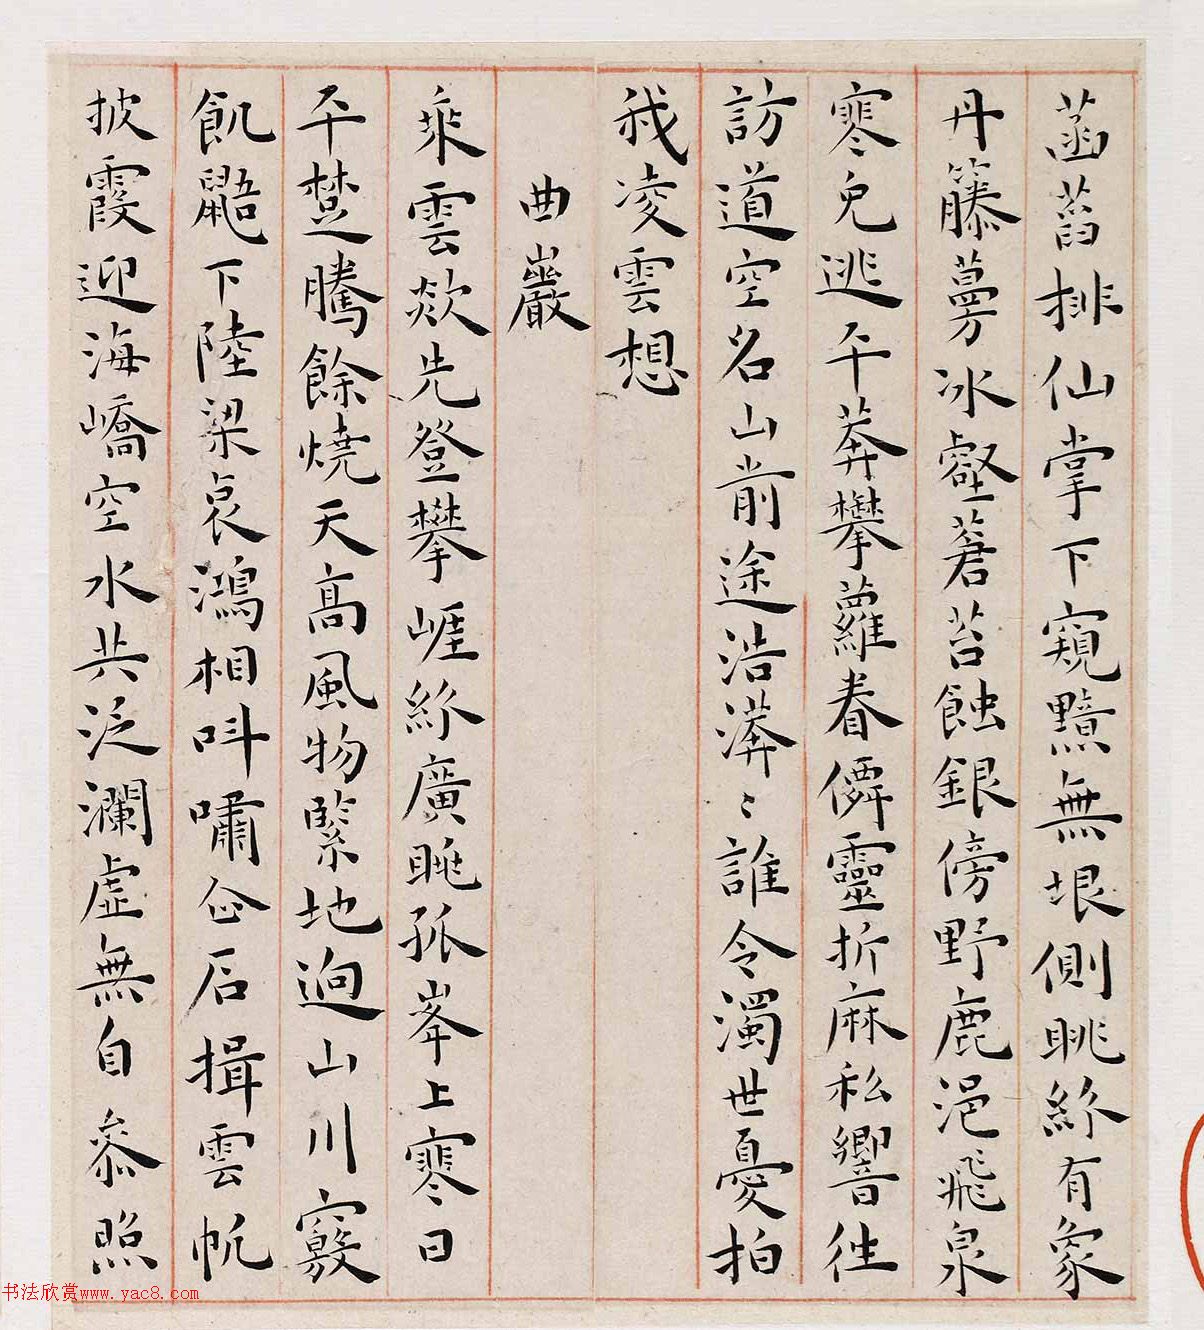 菡萏排仙掌下窺黯無垠側眺紛有象
丹籐蔓冰壑蒼苔蝕銀傍野鹿浥飛泉
寒兔逃平莽攀蘿眷儛靈折麻私響往
訪道空名山前途浩漭〻誰令濁世憂拍
我凌雲想
曲巖
乘雲欻先登攀崕紛廣眺孤峯上寒日
平楚騰餘燒天高風物緊地迥山川竅
飢鼯下陸梁哀鴻相叫嘯企石揖雲帆
披霞迎海嶠空水共泛瀾虛無自叅照
书法欣赏www.yac8.com